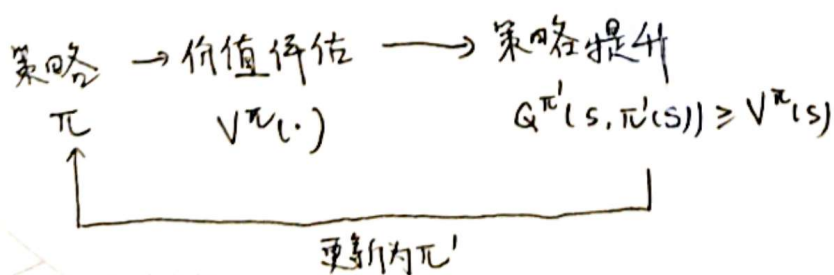 策略 → 价值评估 → 策略提升
π V^π(·) Q^π'(s, π'(s)) ≥ V^π(s)
更新为π'